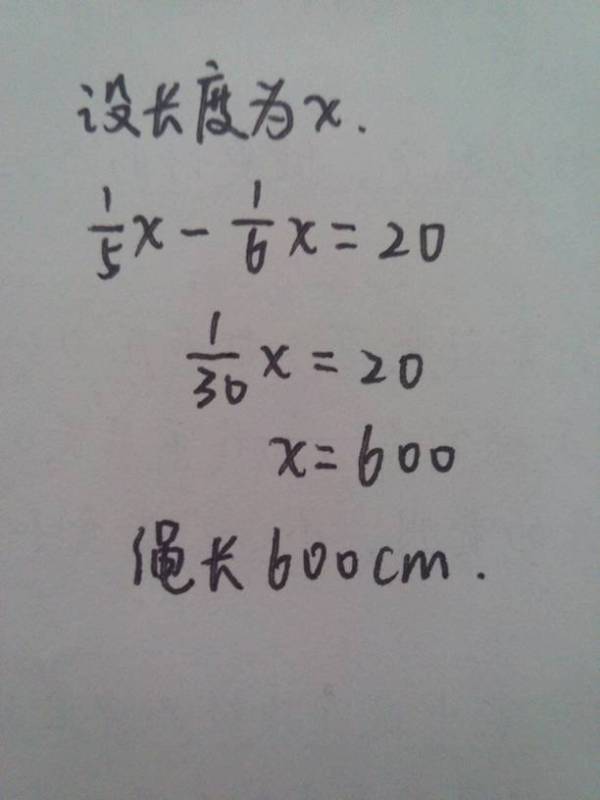 设长度为x.
1/5x - 1/6x = 20
1/30x = 20
x = 600
绳长600cm.